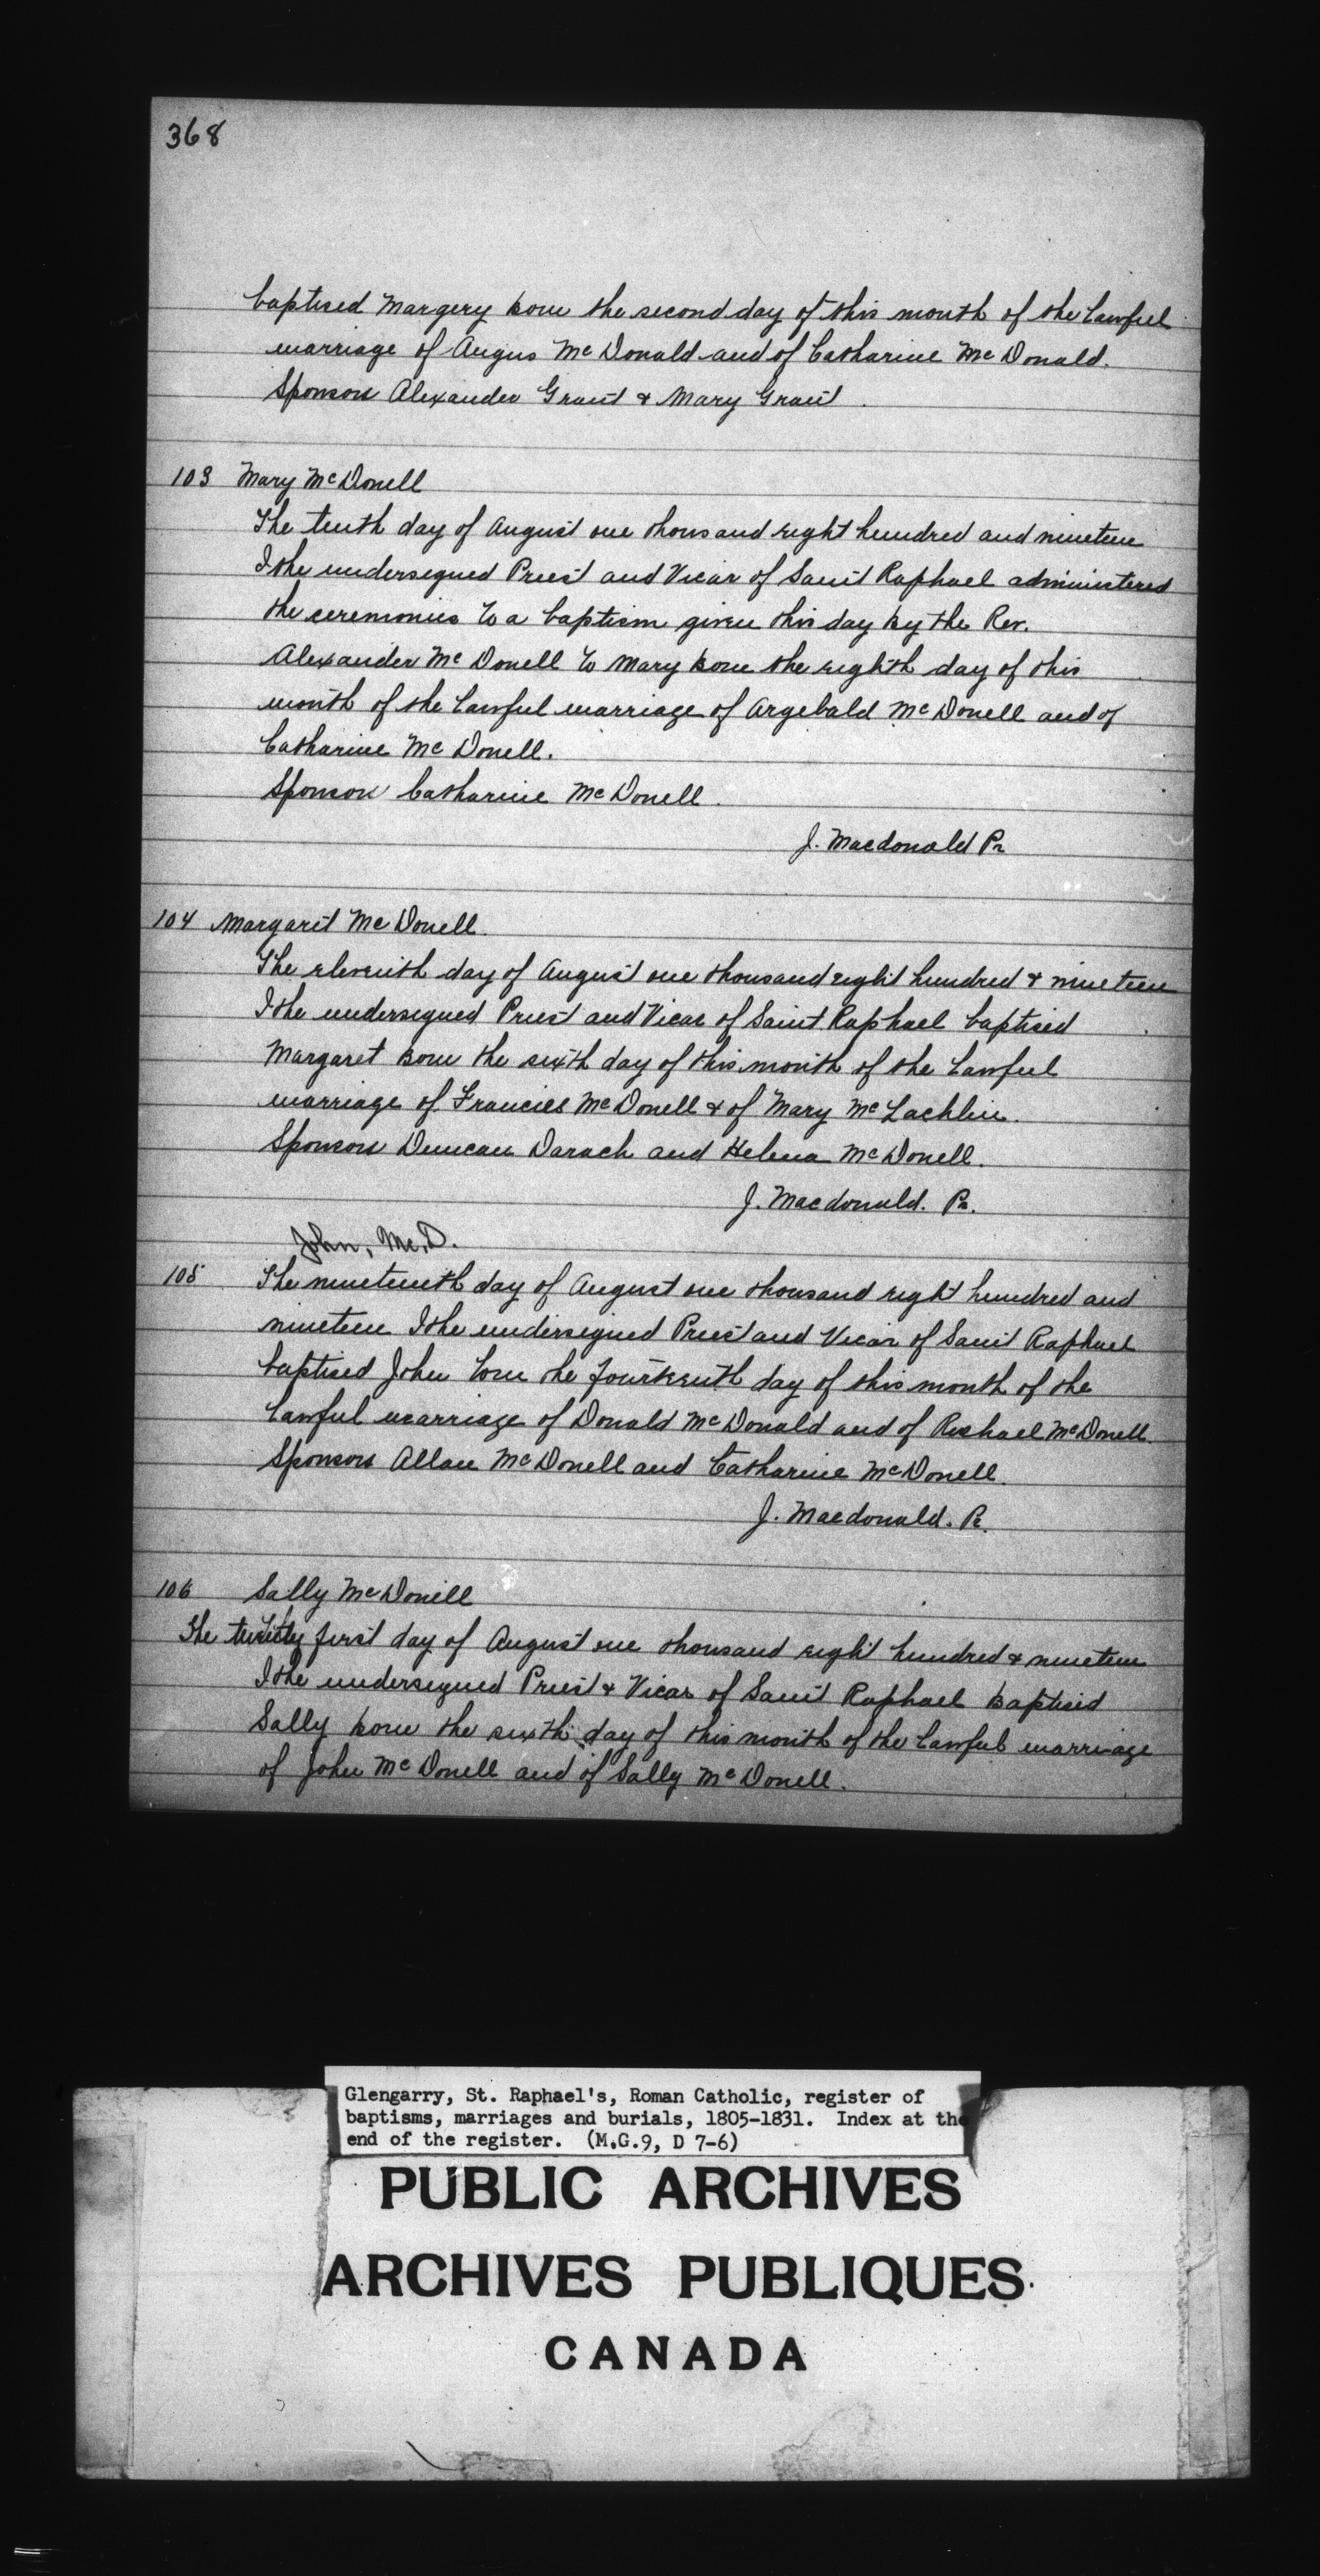 368
baptised Margery born the second day of this month of the lawful
marriage of Angus McDonald and of Catharine McDonald.
Sponsors Alexander Grant & Mary Grant.
103 Mary McDonell
The tenth day of August one thousand eight hundred and nineteen
I the undersigned Priest and Vicar of Saint Raphael administered
the ceremonies to a baptism given this day by the Rev.
Alexander McDonell to Mary born the eighth day of this
month of the lawful marriage of Argebald McDonell and of
Catharine McDonell.
Sponsor Catharine McDonell.
J. Macdonald Pr
104 Margaret McDonell.
The eleventh day of August one thousand eight hundred & nineteen
I the undersigned Priest and Vicar of Saint Raphael baptised
Margaret born the sixth day of this month of the lawful
marriage of Francies McDonell & of Mary McLachlin.
Sponsors Duncan Darach and Helena McDonell.
J. Macdonald. Pr.
John, Mc.D.
105 The nineteenth day of August one thousand eight hundred and
nineteen I the undersigned Priest and Vicar of Saint Raphael
baptised John born the fourteenth day of this month of the
lawful marriage of Donald McDonald and of Rachael McDonell.
Sponsors Allan McDonell and Catharine McDonell.
J. Macdonald. Pr.
106 Sally McDonell
The twenty first day of August one thousand eight hundred & nineteen
I the undersigned Priest & Vicar of Saint Raphael baptised
Sally born the sixth day of this month of the lawful marriage
of John McDonell and of Sally McDonell.
Glengarry, St. Raphael's, Roman Catholic, register of
baptisms, marriages and burials, 1805-1831. Index at the
end of the register. (M.G.9, D 7-6)
PUBLIC ARCHIVES
ARCHIVES PUBLIQUES
CANADA